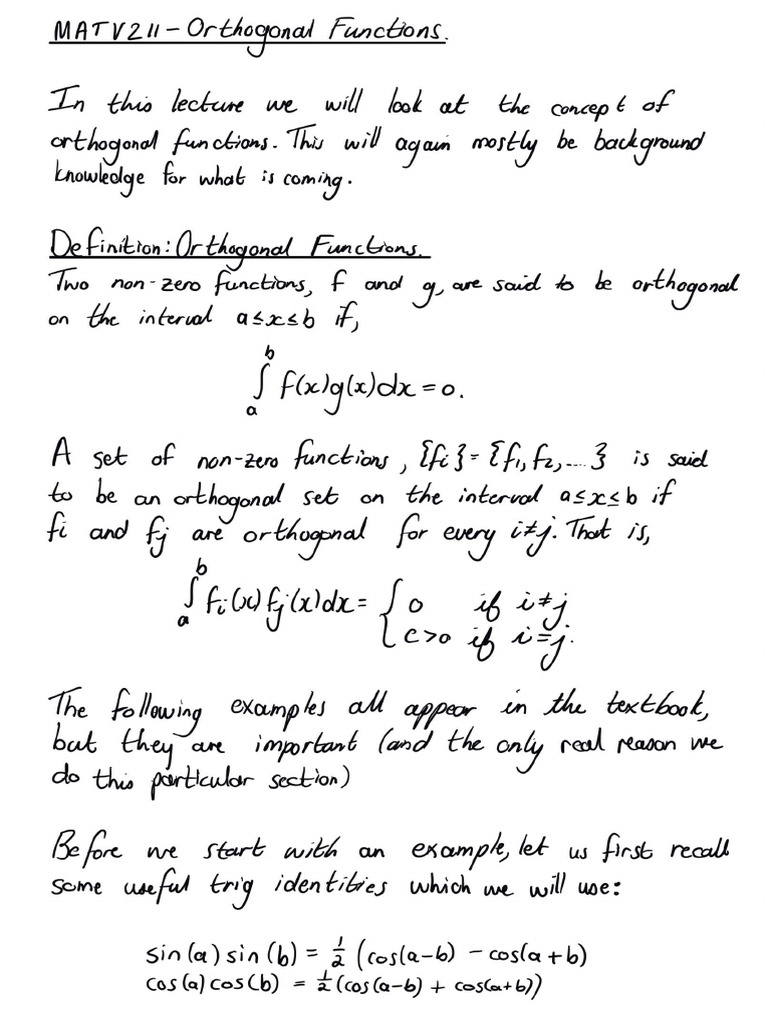 MATV211 - Orthogonal Functions.
In this lecture we will look at the concept of
orthogonal functions. This will again mostly be background
knowledge for what is coming.
Definition: Orthogonal Functions.
Two non-zero functions, f and g, are said to be orthogonal
on the interval a≤x≤b if,
∫_a^b f(x)g(x)dx = 0.
A set of non-zero functions, {fi} = {f1, f2, ....} is said
to be an orthogonal set on the interval a≤x≤b if
fi and fj are orthogonal for every i≠j. That is,
∫_a^b fi(x) fj(x)dx = { 0 if i≠j
c>0 if i=j.
The following examples all appear in the textbook,
but they are important (and the only real reason we
do this particular section)
Before we start with an example, let us first recall
some useful trig identities which we will use:
sin(a) sin(b) = 1/2 (cos(a-b) - cos(a+b)
cos(a) cos(b) = 1/2 (cos(a-b) + cos(a+b))